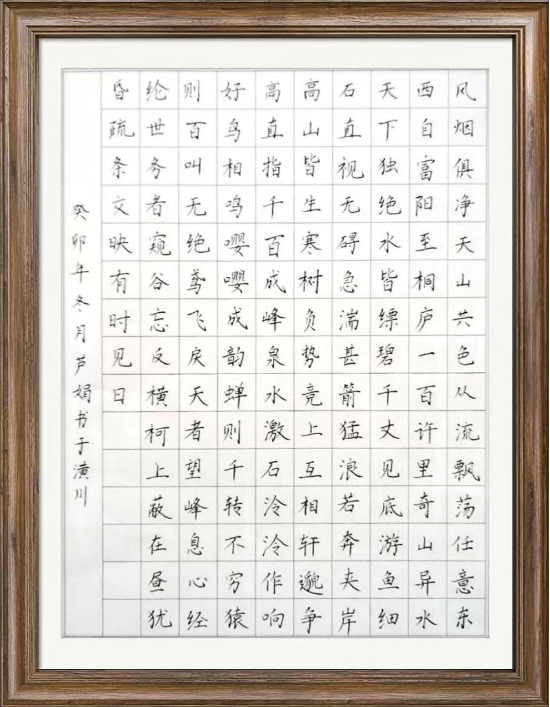 风烟俱净天山共色从流飘荡任意东
西自富阳至桐庐一百许里奇山异水
天下独绝水皆缥碧千丈见底游鱼细
石直视无碍急湍甚箭猛浪若奔夹岸
高山皆生寒树负势竞上互相轩邈争
高直指千百成峰泉水激石泠泠作响
好鸟相鸣嘤嘤成韵蝉则千转不穷猿
则百叫无绝鸢飞戾天者望峰息心经
纶世务者窥谷忘反横柯上蔽在昼犹
昏疏条交映有时见日
癸卯年冬月芦娟书于潢川